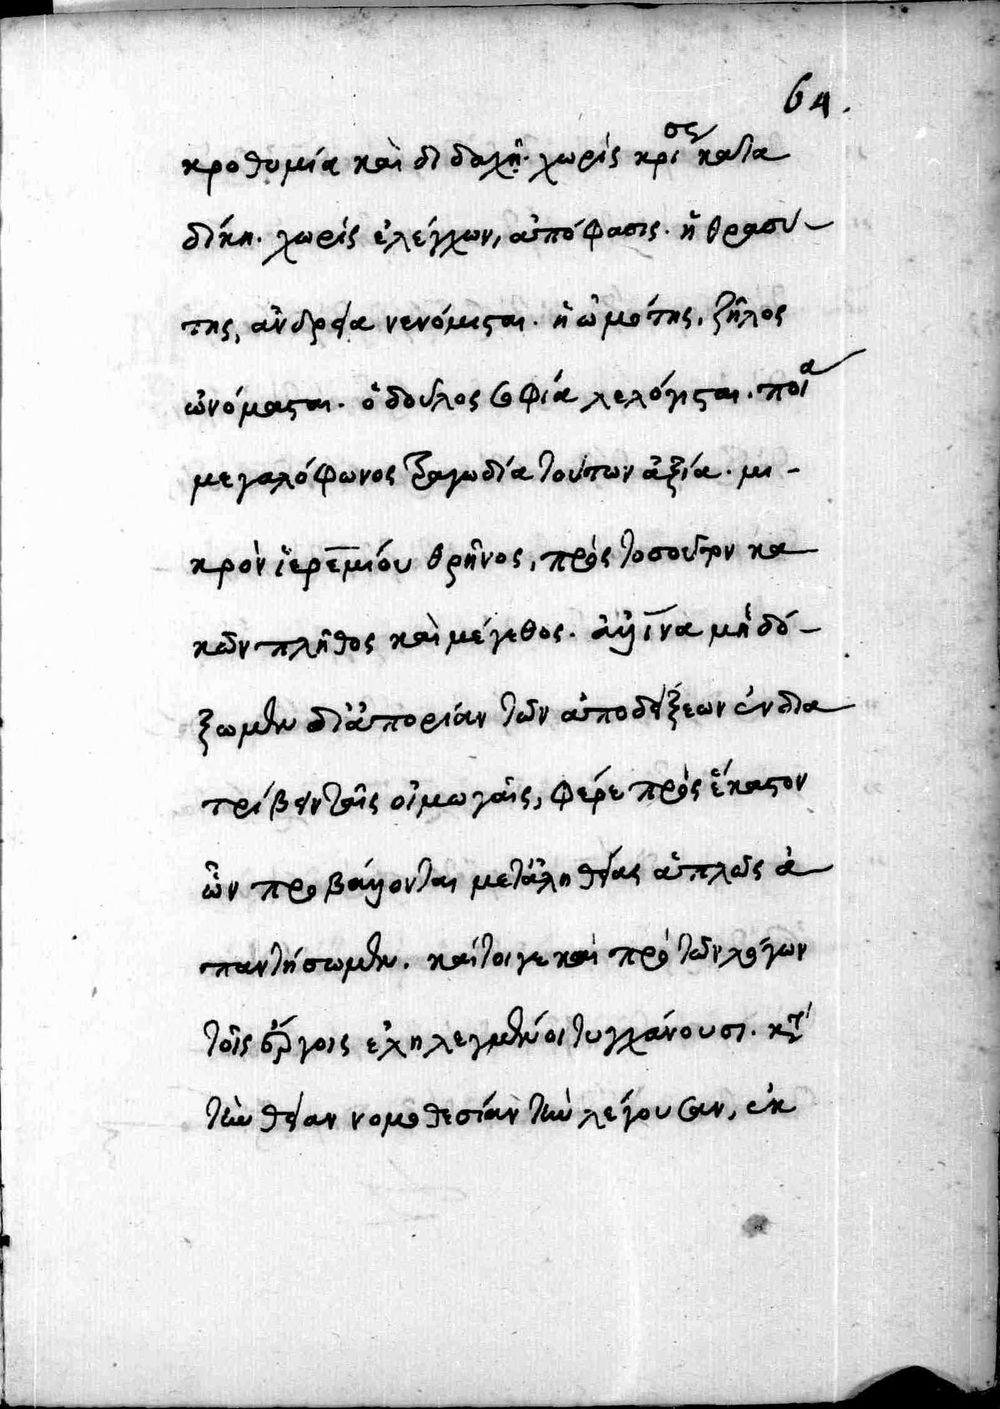 64.
κροθυμία καὶ διδαχή. χωρὶς κρίσεως κατα
δίκη. χωρὶς ἐλέγχων, ἀπόφασις. ἡ θρασύ-
της, ἀνδρεία νενόμισται. ἡ ὠμότης, ζῆλος
ὠνόμασται. ὁ δοῦλος σοφία λελόγισται. ποία
μεγαλόφωνος τραγωδία τούτων ἀξία. μι-
κρὸν ἱερεμίου θρῆνος, πρὸς τοσοῦτον κα
κῶν πλῆθος καὶ μέγεθος. ἀλλ' ἵνα μὴ δό-
ξωμεν δι' ἀπορίαν τῶν ἀποδείξεων ἐνδια
τρίβειν ταῖς οἰμωγαῖς, φέρε πρὸς ἕκαστον
ὧν προβάλλονται μετ' ἀληθείας ἁπλῶς ἀ
παντήσωμεν. καίτοιγε καὶ πρὸ τῶν λόγων
τοῖς ἔργοις ἐληλεγμένοι τυγχάνουσι. κατὰ
τὴν θείαν νομοθεσίαν τὴν λέγουσαν, ἐκ